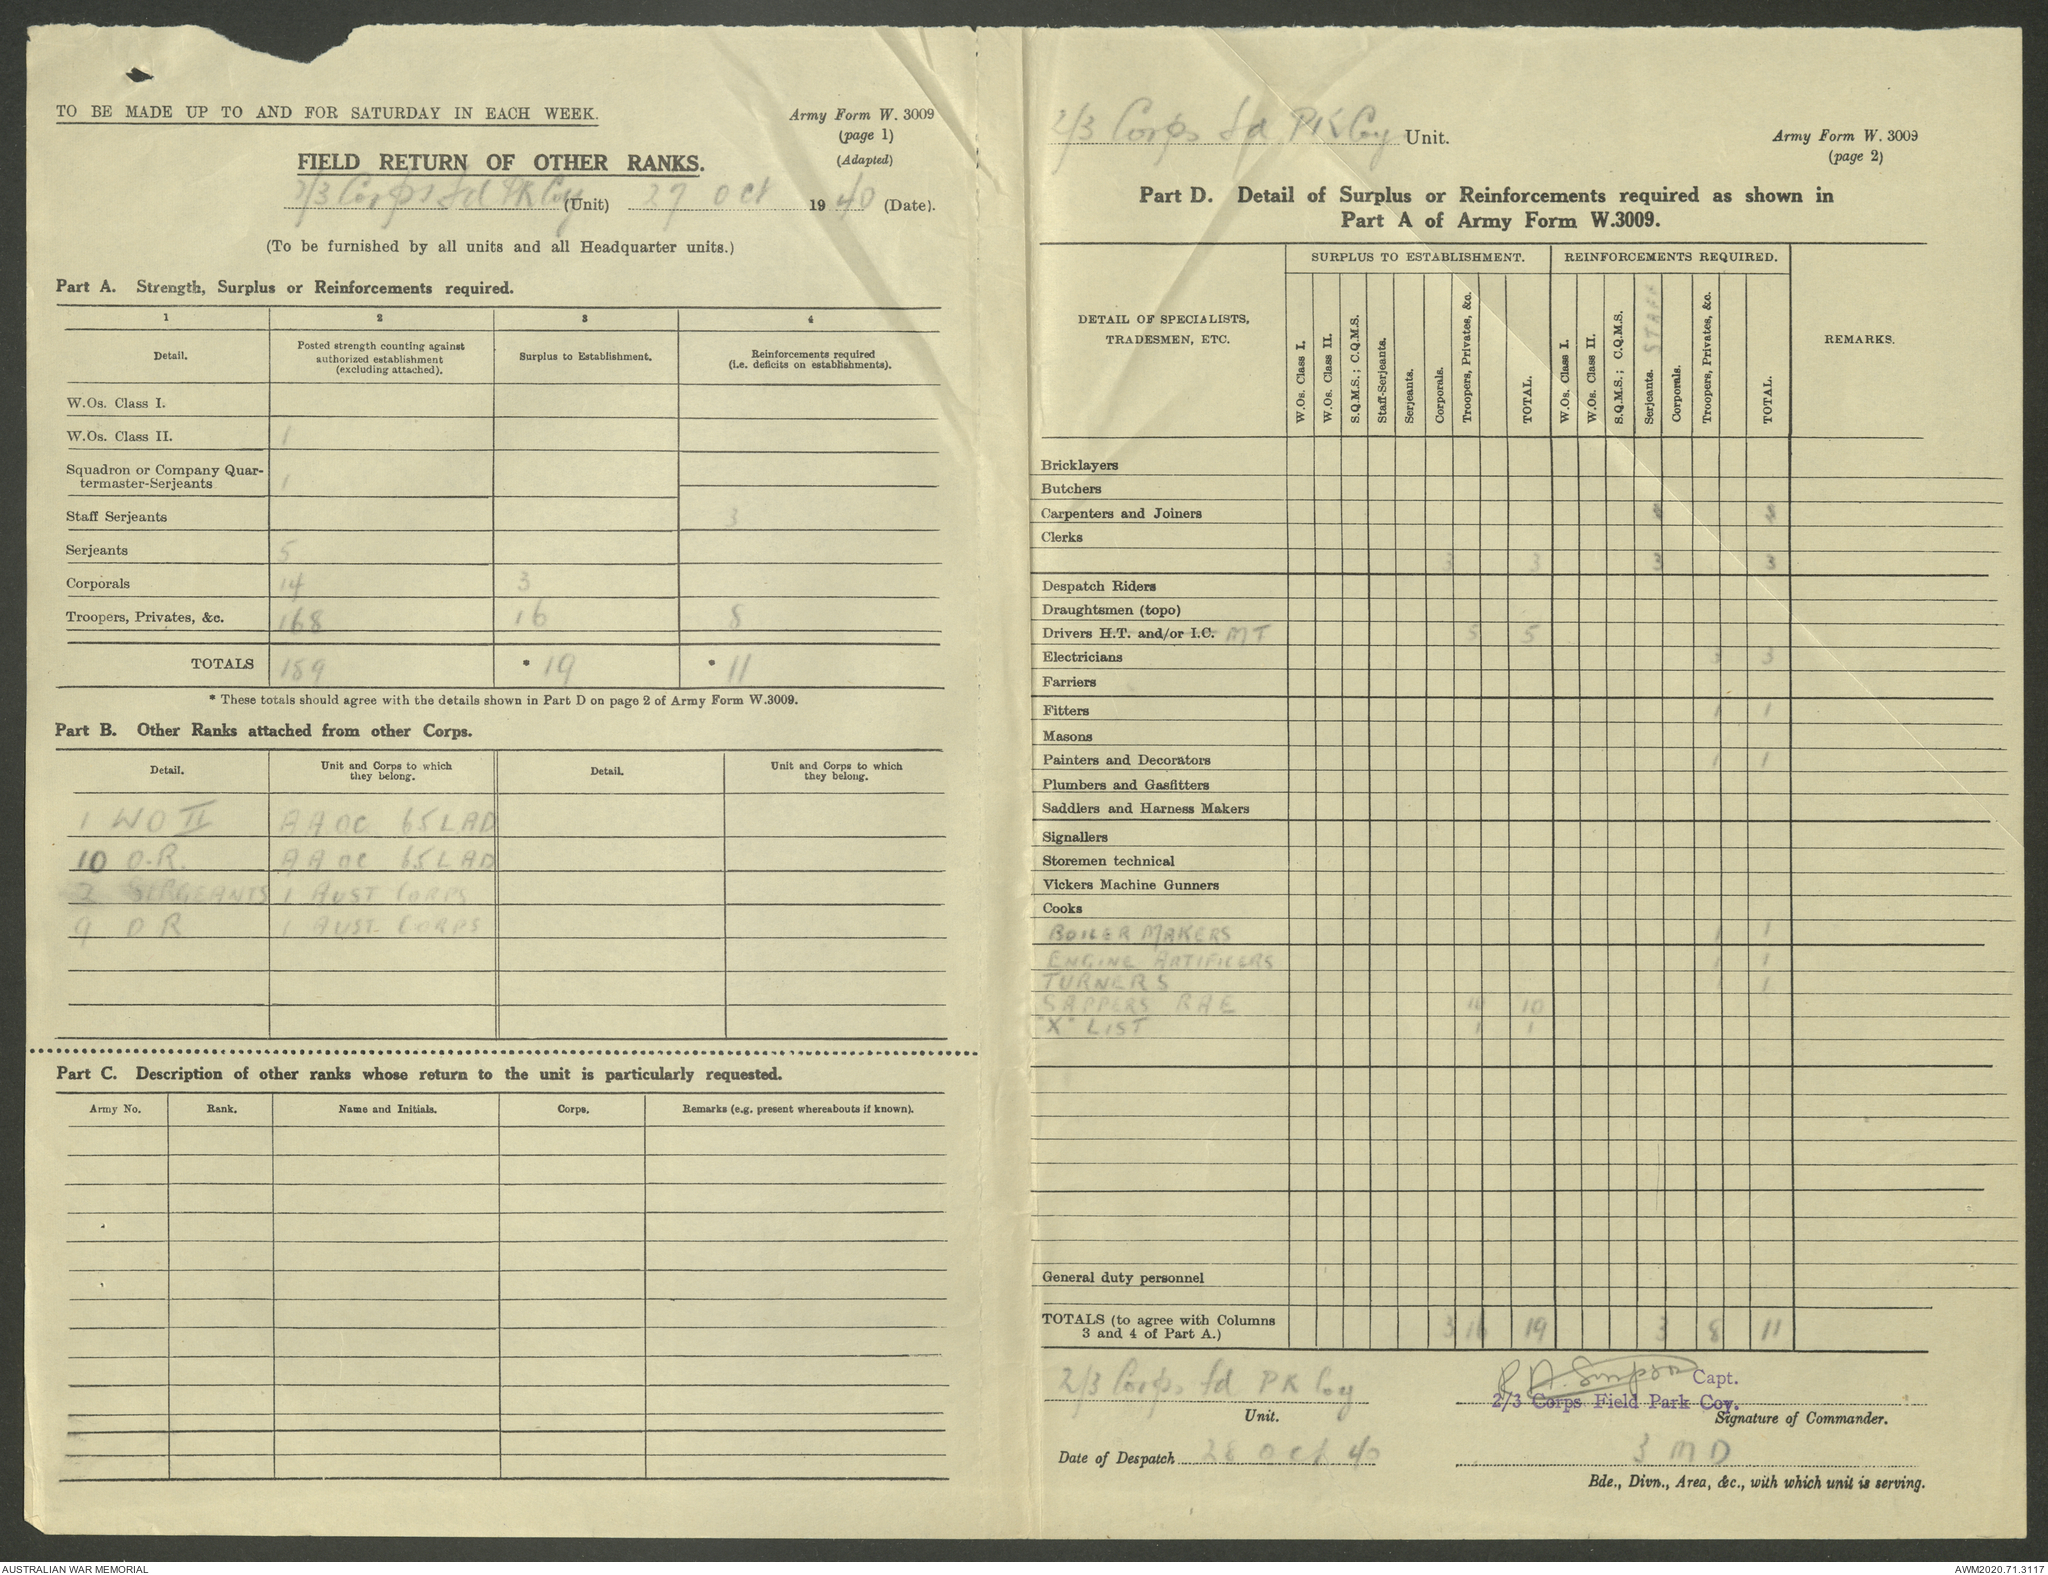 TO BE MADE UP TO AND FOR SATURDAY IN EACH WEEK.
Army Form W. 3009
(page 1)
(Adapted)
FIELD RETURN OF OTHER RANKS.
2/3 Corps fd PK Coy (Unit) 27 Oct 1940 (Date).
(To be furnished by all units and all Headquarter units.)
Part A. Strength, Surplus or Reinforcements required.
1 2 3 4
Detail. Posted strength counting against authorized establishment (excluding attached). Surplus to Establishment. Reinforcements required (i.e. deficits on establishments).
W.Os. Class I.
W.Os. Class II. 1
Squadron or Company Quar-
termaster-Serjeants 1
Staff Serjeants 3
Serjeants 5
Corporals 14 3
Troopers, Privates, &c. 168 16 8
TOTALS 189 * 19 * 11
* These totals should agree with the details shown in Part D on page 2 of Army Form W.3009.
Part B. Other Ranks attached from other Corps.
Detail. Unit and Corps to which they belong. Detail. Unit and Corps to which they belong.
1 WO II AAOC 65 LAD
10 O.R. AAOC 65 LAD
2 SERGEANTS 1 AUST CORPS
9 OR 1 AUST CORPS
Part C. Description of other ranks whose return to the unit is particularly requested.
Army No. Rank. Name and Initials. Corps. Remarks (e.g. present whereabouts if known).
2/3 Corps fd PK Coy Unit.
Army Form W. 3009
(page 2)
Part D. Detail of Surplus or Reinforcements required as shown in
Part A of Army Form W.3009.
DETAIL OF SPECIALISTS, TRADESMEN, ETC.
SURPLUS TO ESTABLISHMENT. REINFORCEMENTS REQUIRED.
REMARKS.
W.Os. Class I.
W.Os. Class II.
S.Q.M.S.; C.Q.M.S.
Staff-Serjeants.
Serjeants.
Corporals.
Troopers, Privates, &c.
TOTAL.
W.Os. Class I.
W.Os. Class II.
S.Q.M.S.; C.Q.M.S.
Serjeants. STAFF
Corporals.
Troopers, Privates, &c.
TOTAL.
Bricklayers
Butchers
Carpenters and Joiners
Clerks
3 3 3 3
Despatch Riders
Draughtsmen (topo)
Drivers H.T. and/or I.C. MT 5 5
Electricians 3 3
Farriers
Fitters 1 1
Masons
Painters and Decorators 1 1
Plumbers and Gasfitters
Saddlers and Harness Makers
Signallers
Storemen technical
Vickers Machine Gunners
Cooks
BOILER MAKERS 1 1
ENGINE ARTIFICERS 1 1
TURNERS 1 1
SAPPERS RAE 10 10
"X" LIST 1 1
General duty personnel
TOTALS (to agree with Columns
3 and 4 of Part A.) 3 16 19 3 8 11
2/3 Corps fd PK Coy
Unit.
R A Simpson Capt.
2/3 Corps Field Park Coy.
Signature of Commander.
Date of Despatch 28 Oct 40
3 MD
Bde., Divn., Area, &c., with which unit is serving.
AUSTRALIAN WAR MEMORIAL
AWM2020.71.3117